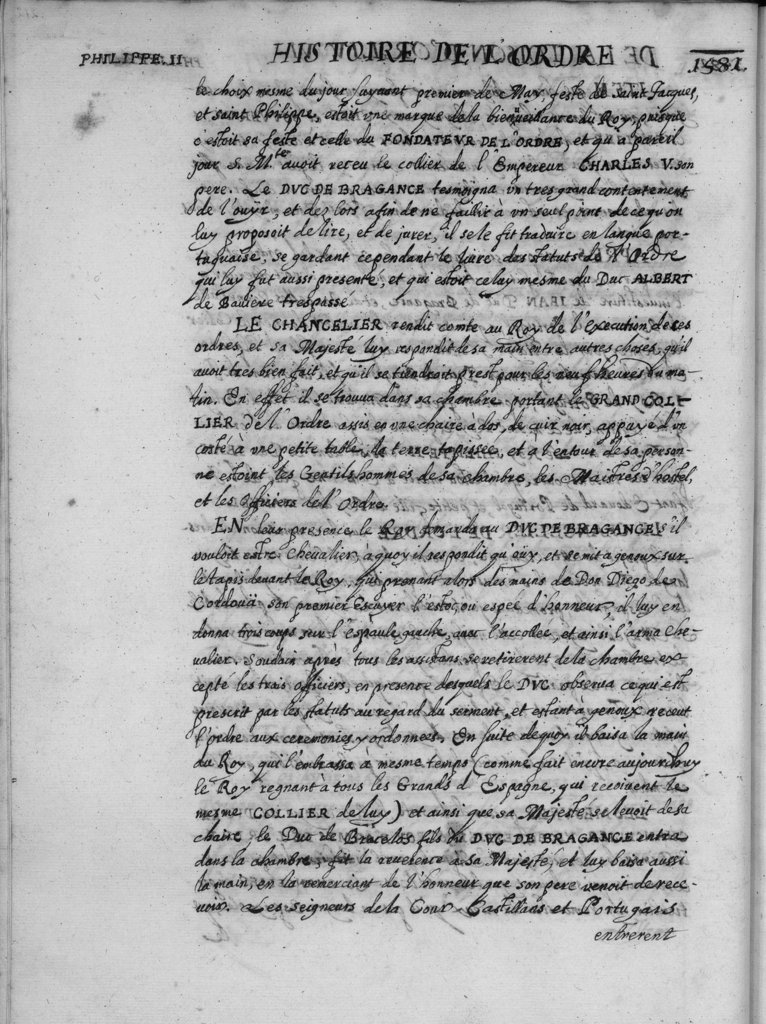 PHILIPPE. II
HISTOIRE DE L'ORDRE
1581.
le choix mesme du jour suyuant premier de May feste de saint Jacques,
et saint Philippe, estoit vne marque de la bienueillance du Roy, puisque
c'estoit sa feste et celle du FONDATEVR DE L'ORDRE, et qu'a pareil
jour S. M.te auoit receu le collier de l'Empereur CHARLES V. son
pere. Le DVC DE BRAGANCE tesmoigna vn tres grand contentement
de l'ouÿr, et dez lors afin de ne faillir à vn seul point de ce qu'on
luy proposoit de lire, et de jurer, il se le fit traduire en langue por-
tugaise, se gardant cependant le liure des statuts de l'Ordre
qui luy fut aussi presenté, et qui estoit celuy mesme du Duc ALBERT
de Bauiere trespassé
LE CHANCELIER rendit comte au Roy de l'execution de ses
ordres, et sa Majesté luy respondit de sa main entre autres choses, qu'il
auoit tres bien fait, et qu'il se tiendroit prest pour les neuf heures du ma-
tin. En effet il se trouua dans sa chambre portant le GRAND COL-
LIER de l'Ordre assis en vne chaire à dos, de cuir noir, appuyé d'vn
costé à vne petite table, la terre tapissée, et a l'entour de sa person-
ne estoint les Gentilshommes de sa chambre, les Maistres d'hostel,
et les Officiers de l'Ordre.
EN leur presence le Roy demanda au DVC DE BRAGANCE s'il
vouloit estre Cheualier, à quoy il respondit qu'ouÿ, et se mit a genoux sur
le tapis deuant le Roy, qui prenant alors des mains de Don Diego de
Cordoüa son premier Escuyer l'estoc, ou espée d'honneur, il luy en
donna trois coups sur l'espaule gauche, auec l'accollée, et ainsi l'arma Che-
ualier. Soudain après tous les assistans se retirerent de la chambre ex-
cepté les trois officiers, en presence desquels le DVC obserua ce qui est
prescrit par les statuts au regard du serment, et estant à genoux receut
l'ordre aux ceremonies y ordonnées. En suite de quoy il baisa la main
du Roy, qui l'embrassa à mesme temps (comme fait encore aujourd'huy
le Roy regnant à tous les Grands d'Espagne, qui reçoiuent le
mesme COLLIER de luy) et ainsi que sa Majesté se leuoit de sa
chaire, le Duc de Bracelos fils du DVC DE BRAGANCE entra
dans la chambre, fit la reuerence a sa Majesté, et luy baisa aussi
la main, en la remerciant de l'honneur que son pere venoit de rece-
uoir. Les seigneurs de la Cour Castillans et Portugais
entrerent